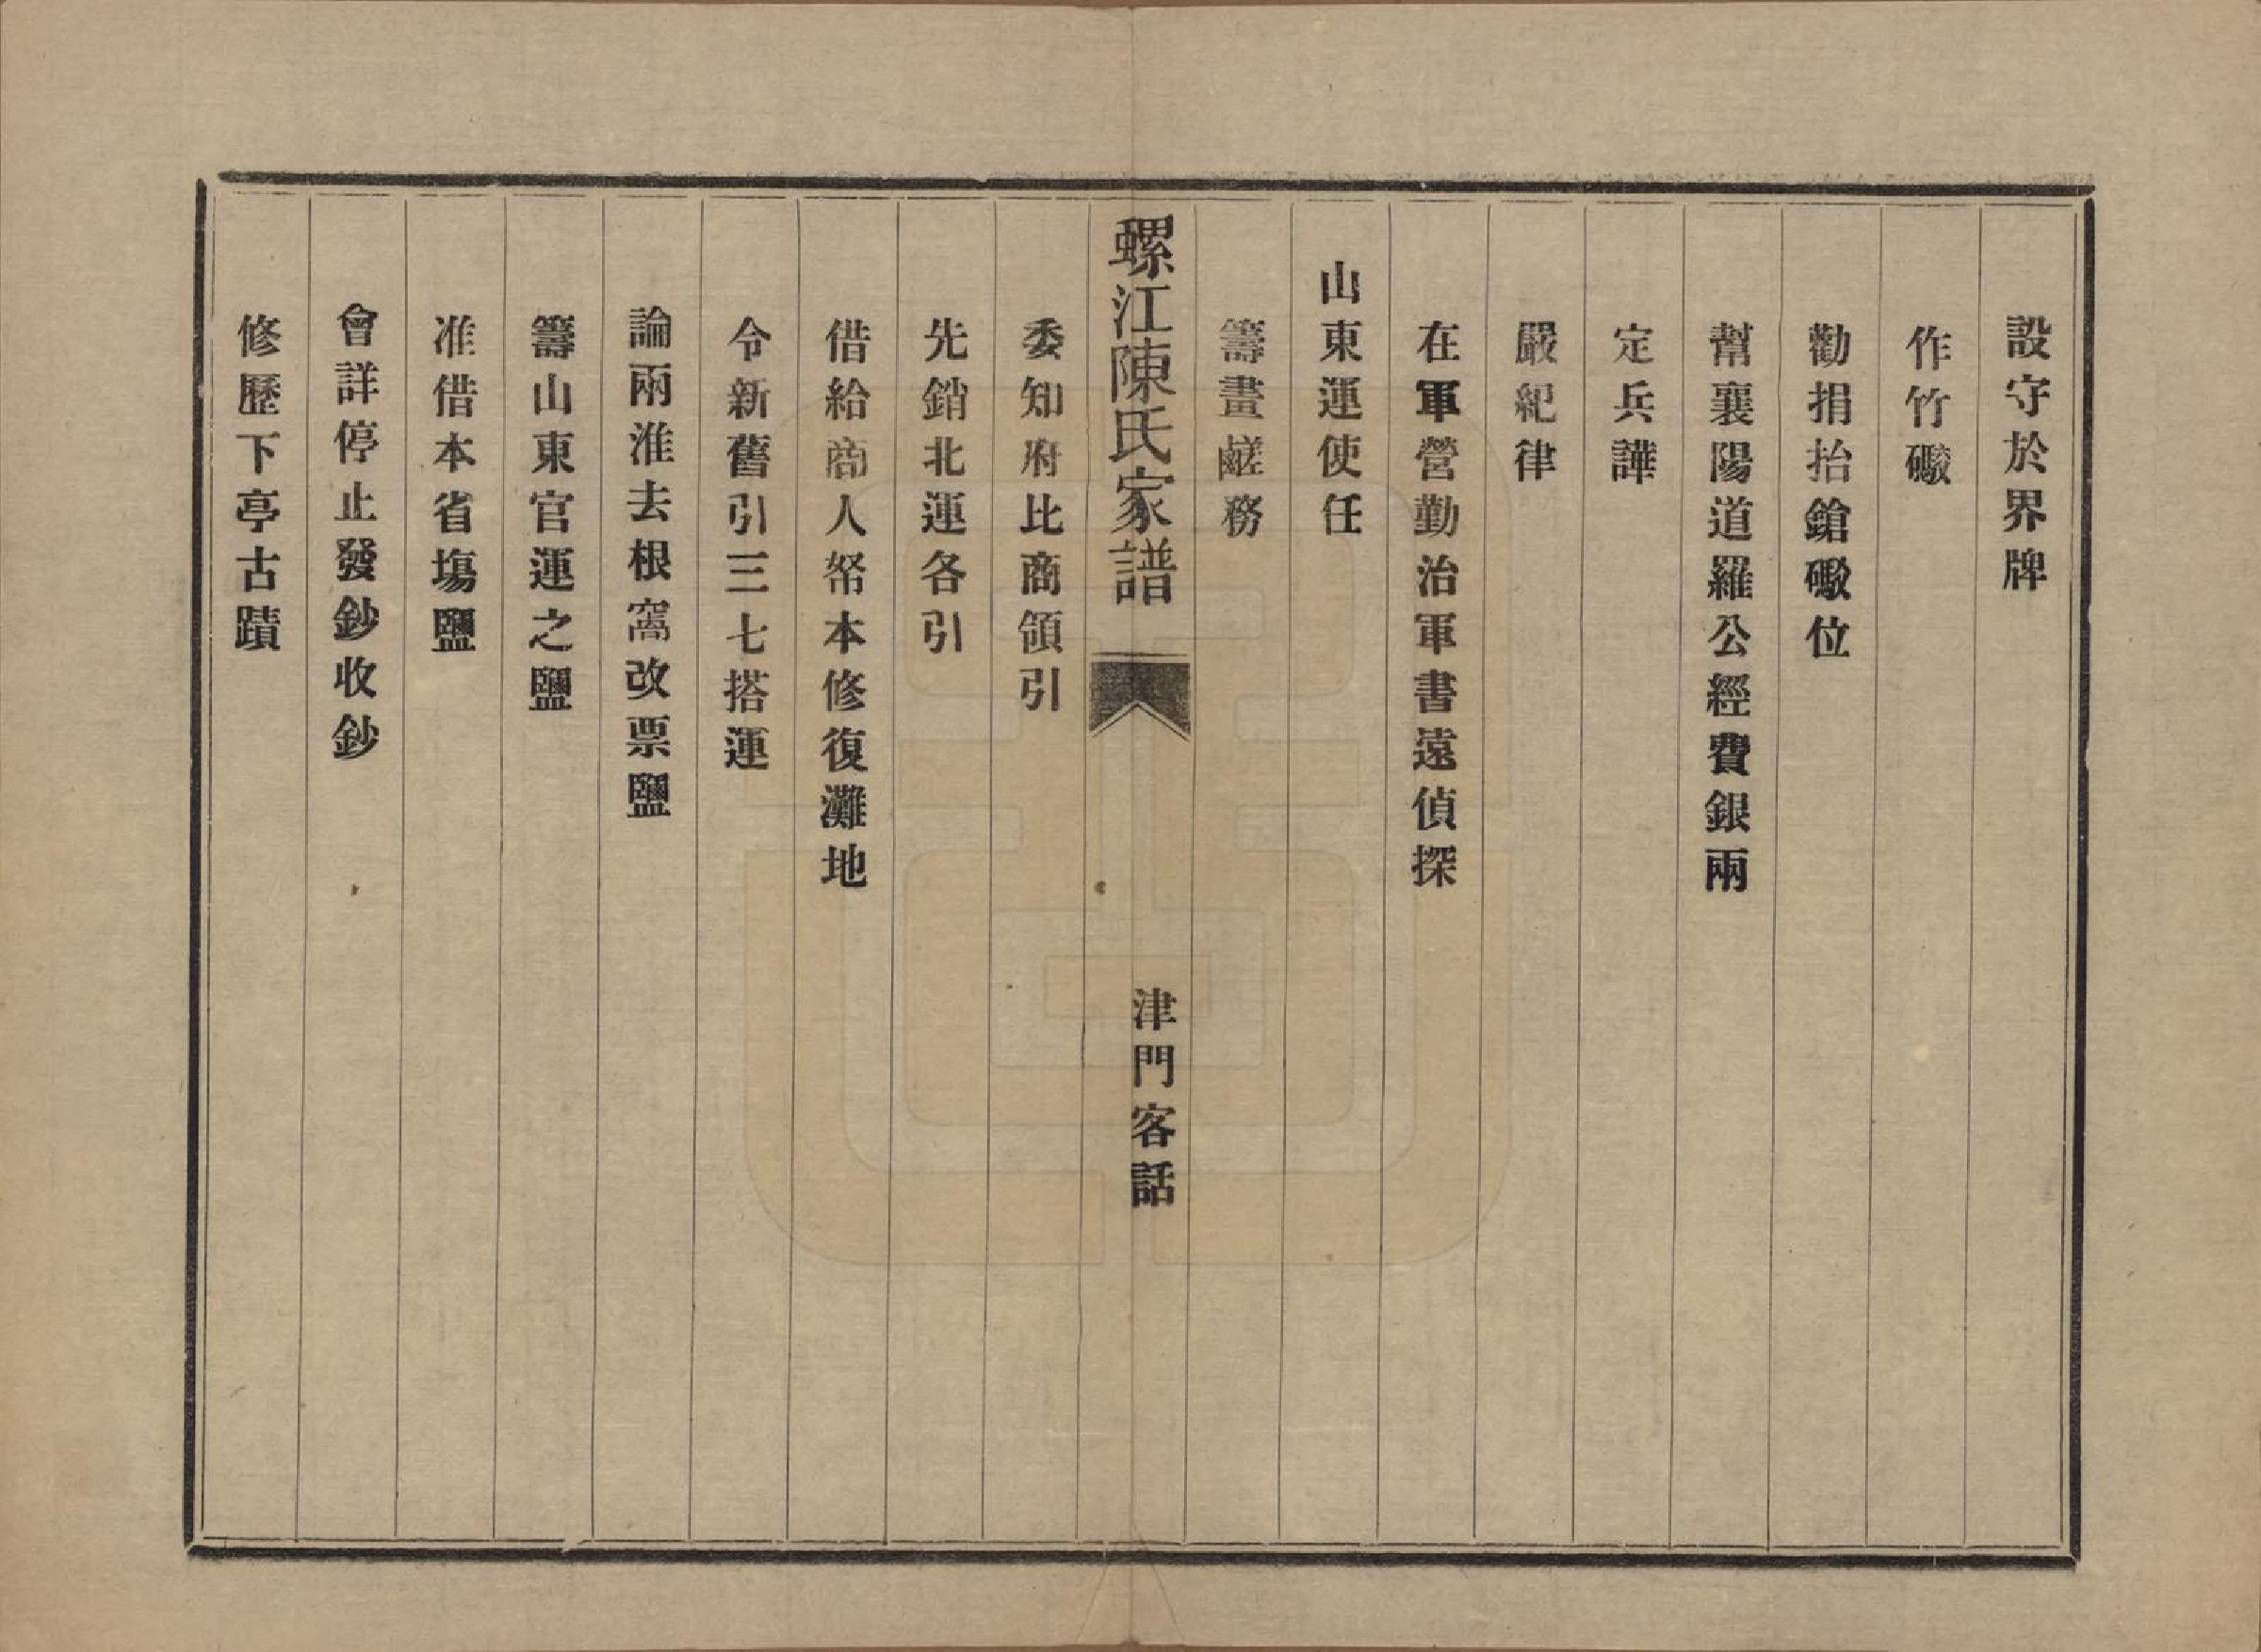 設守於界牌
作竹礮
勸捐抬鎗礮位
幫襄陽道羅公經費銀兩
定兵譁
嚴紀律
在軍營勤治軍書遠偵探
山東運使任
籌畫鹺務
螺江陳氏家譜
津門客話
委知府比商領引
先銷北運各引
借給商人帑本修復灘地
令新舊引三七搭運
論兩淮去根窩改票鹽
籌山東官運之鹽
准借本省塲鹽
會詳停止發鈔收鈔
修歷下亭古蹟